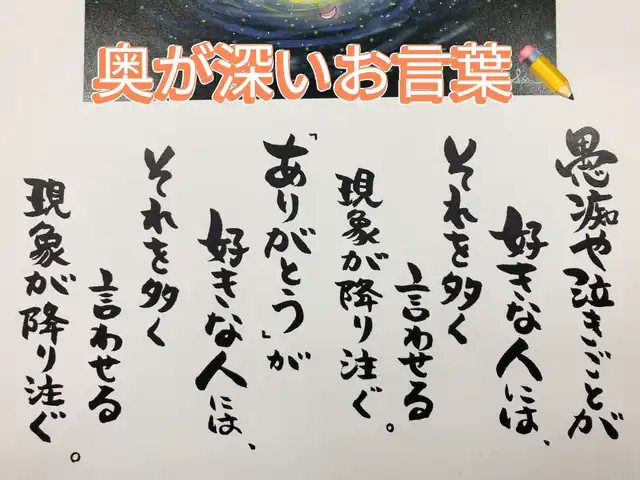 奥が深いお言葉✏️
愚痴や泣きごとが
好きな人には、
それを多く
言わせる
現象が降り注ぐ。
「ありがとう」が
好きな人には、
それを多く
言わせる
現象が降り注ぐ。